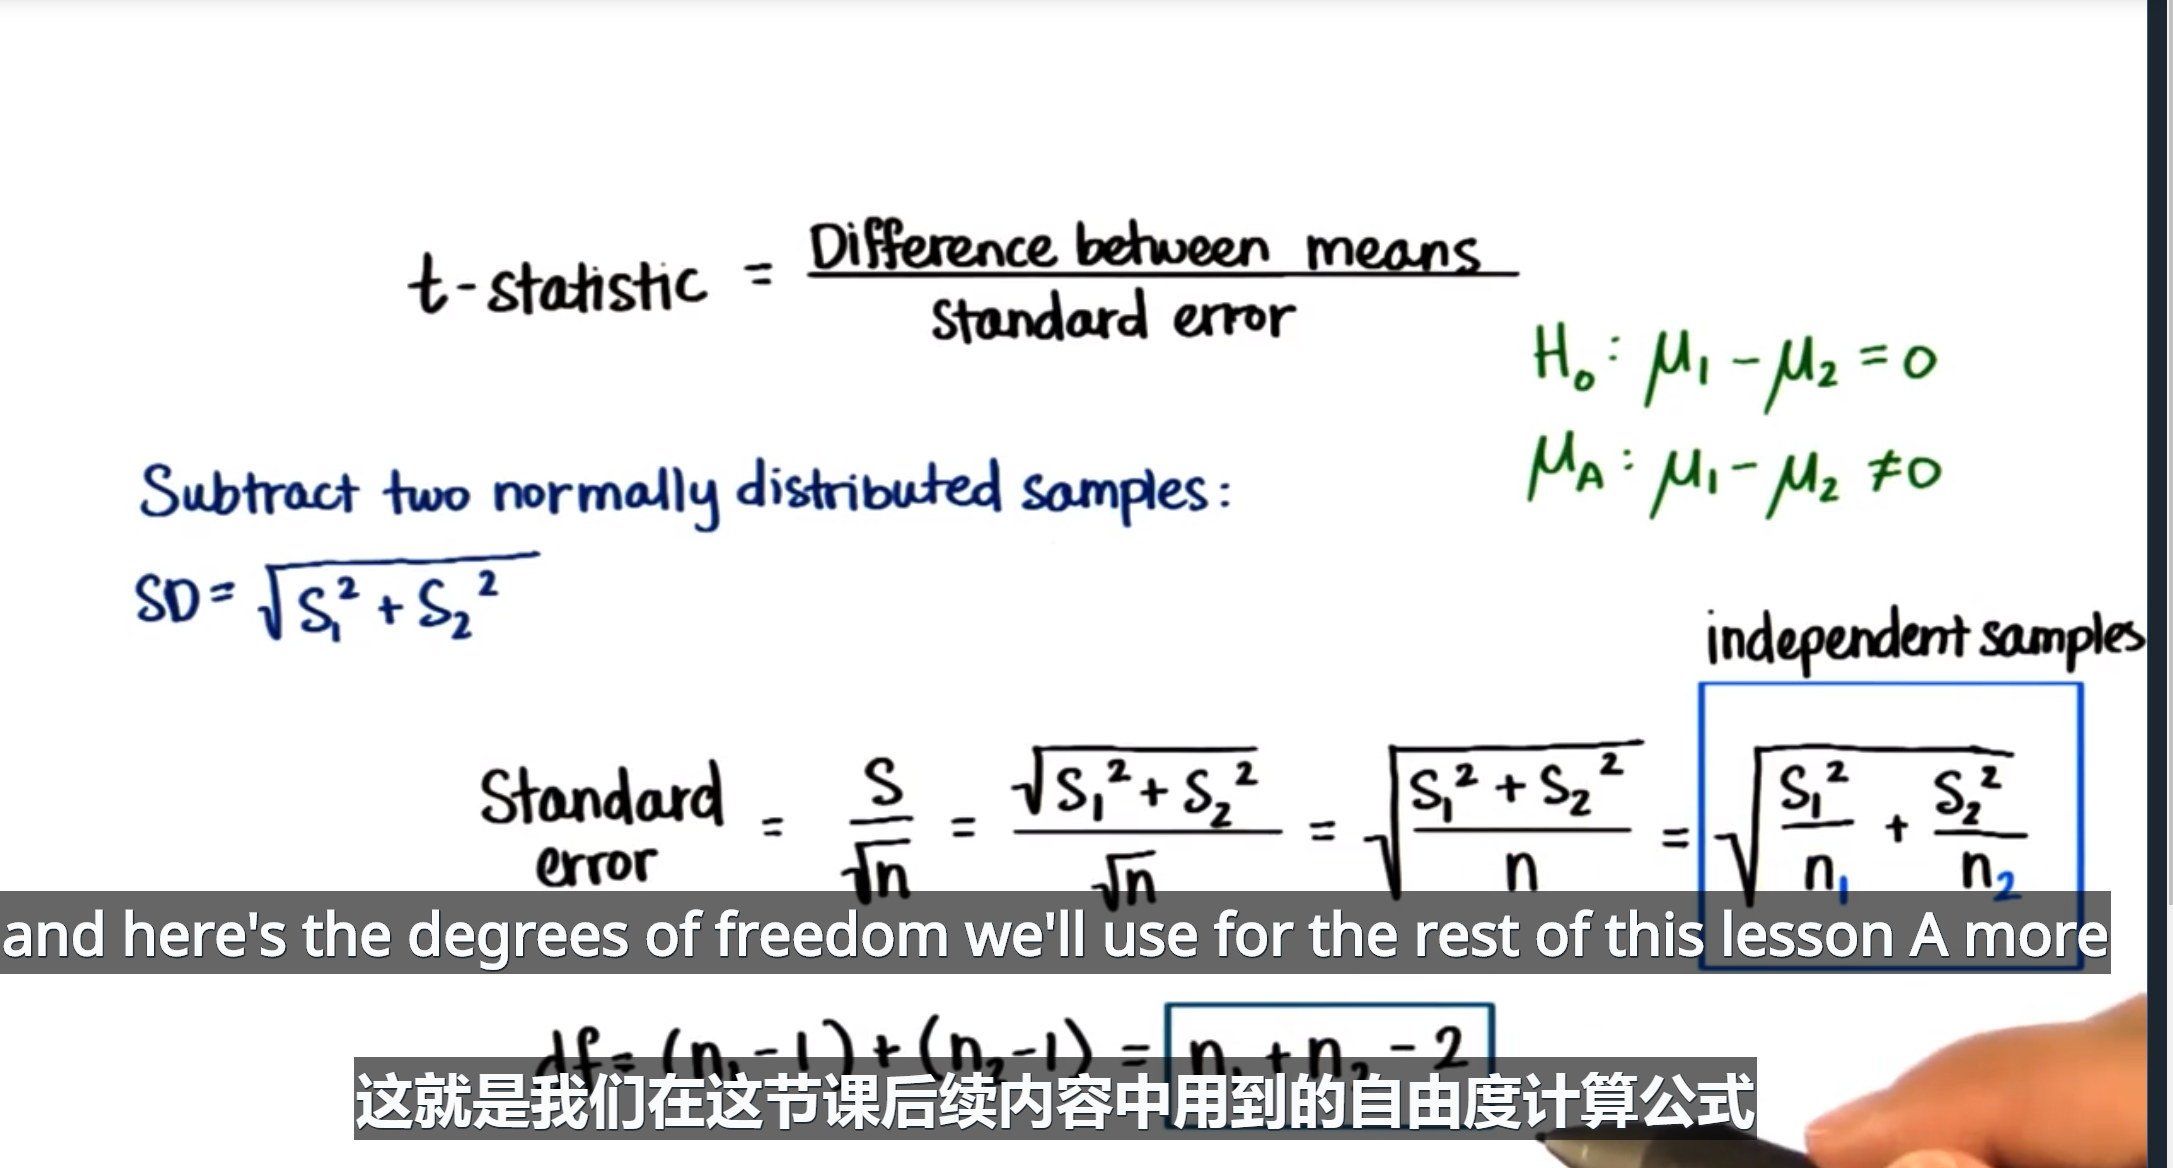 t-statistic = Difference between means / Standard error
H₀: μ₁ - μ₂ = 0
μ_A: μ₁ - μ₂ ≠ 0
Subtract two normally distributed samples:
SD = √(S₁² + S₂²)
independent samples
Standard error = S/√n = √(S₁² + S₂²)/√n = √((S₁² + S₂²)/n) = √(S₁²/n₁ + S₂²/n₂)
and here's the degrees of freedom we'll use for the rest of this lesson A more
df = (n₁-1) + (n₂-1) = n₁ + n₂ - 2
这就是我们在这节课后续内容中用到的自由度计算公式